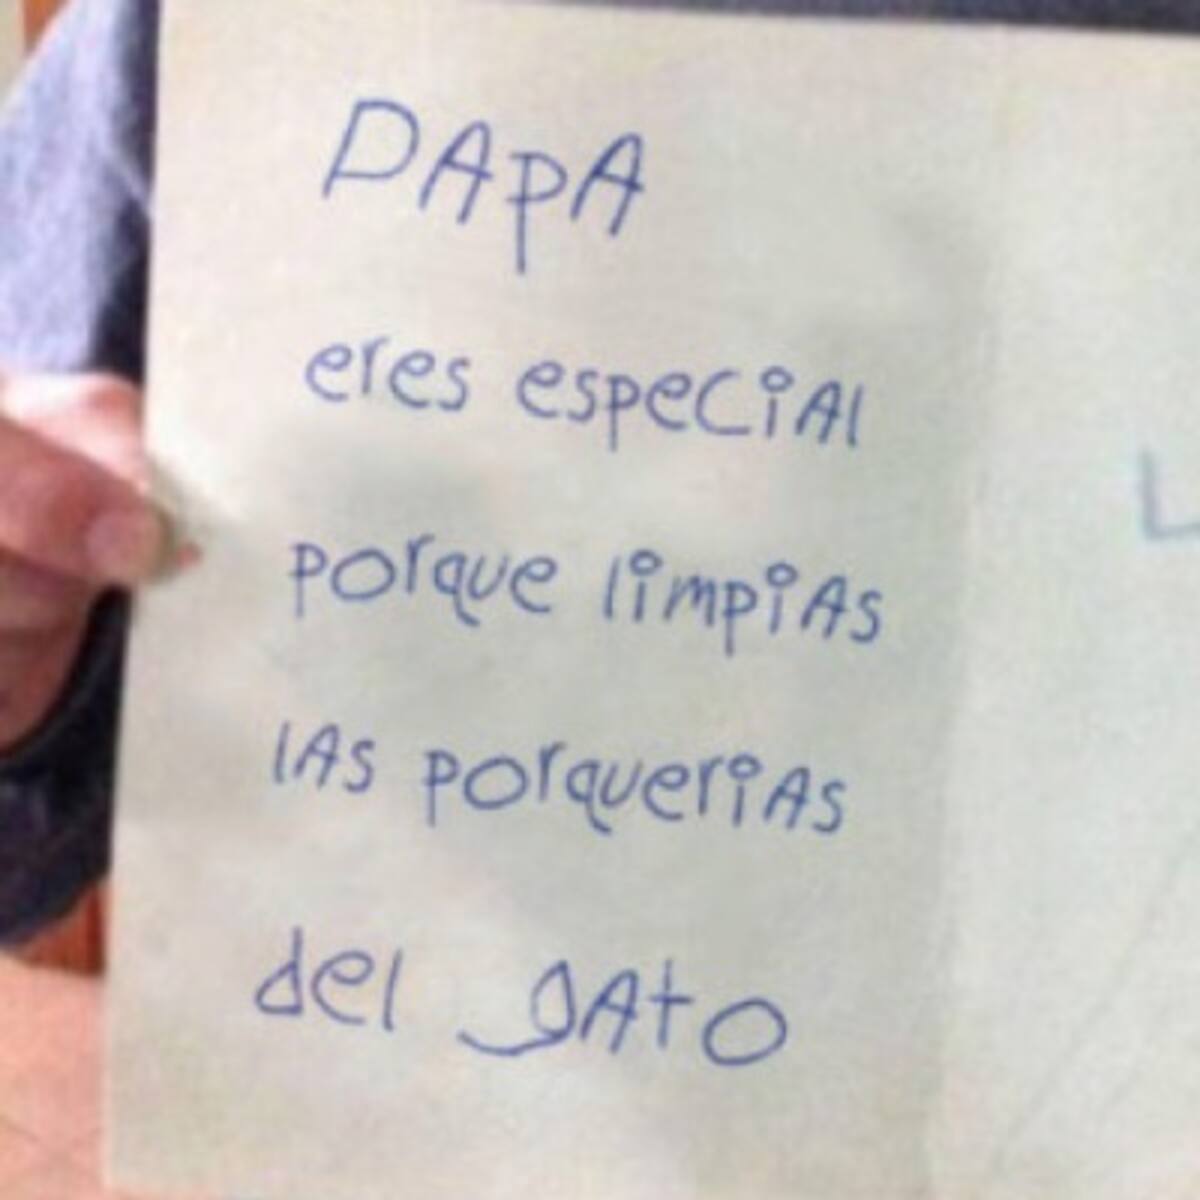 PApA
eres especiAl
porque limpiAs
lAs porqueriAs
del gAto